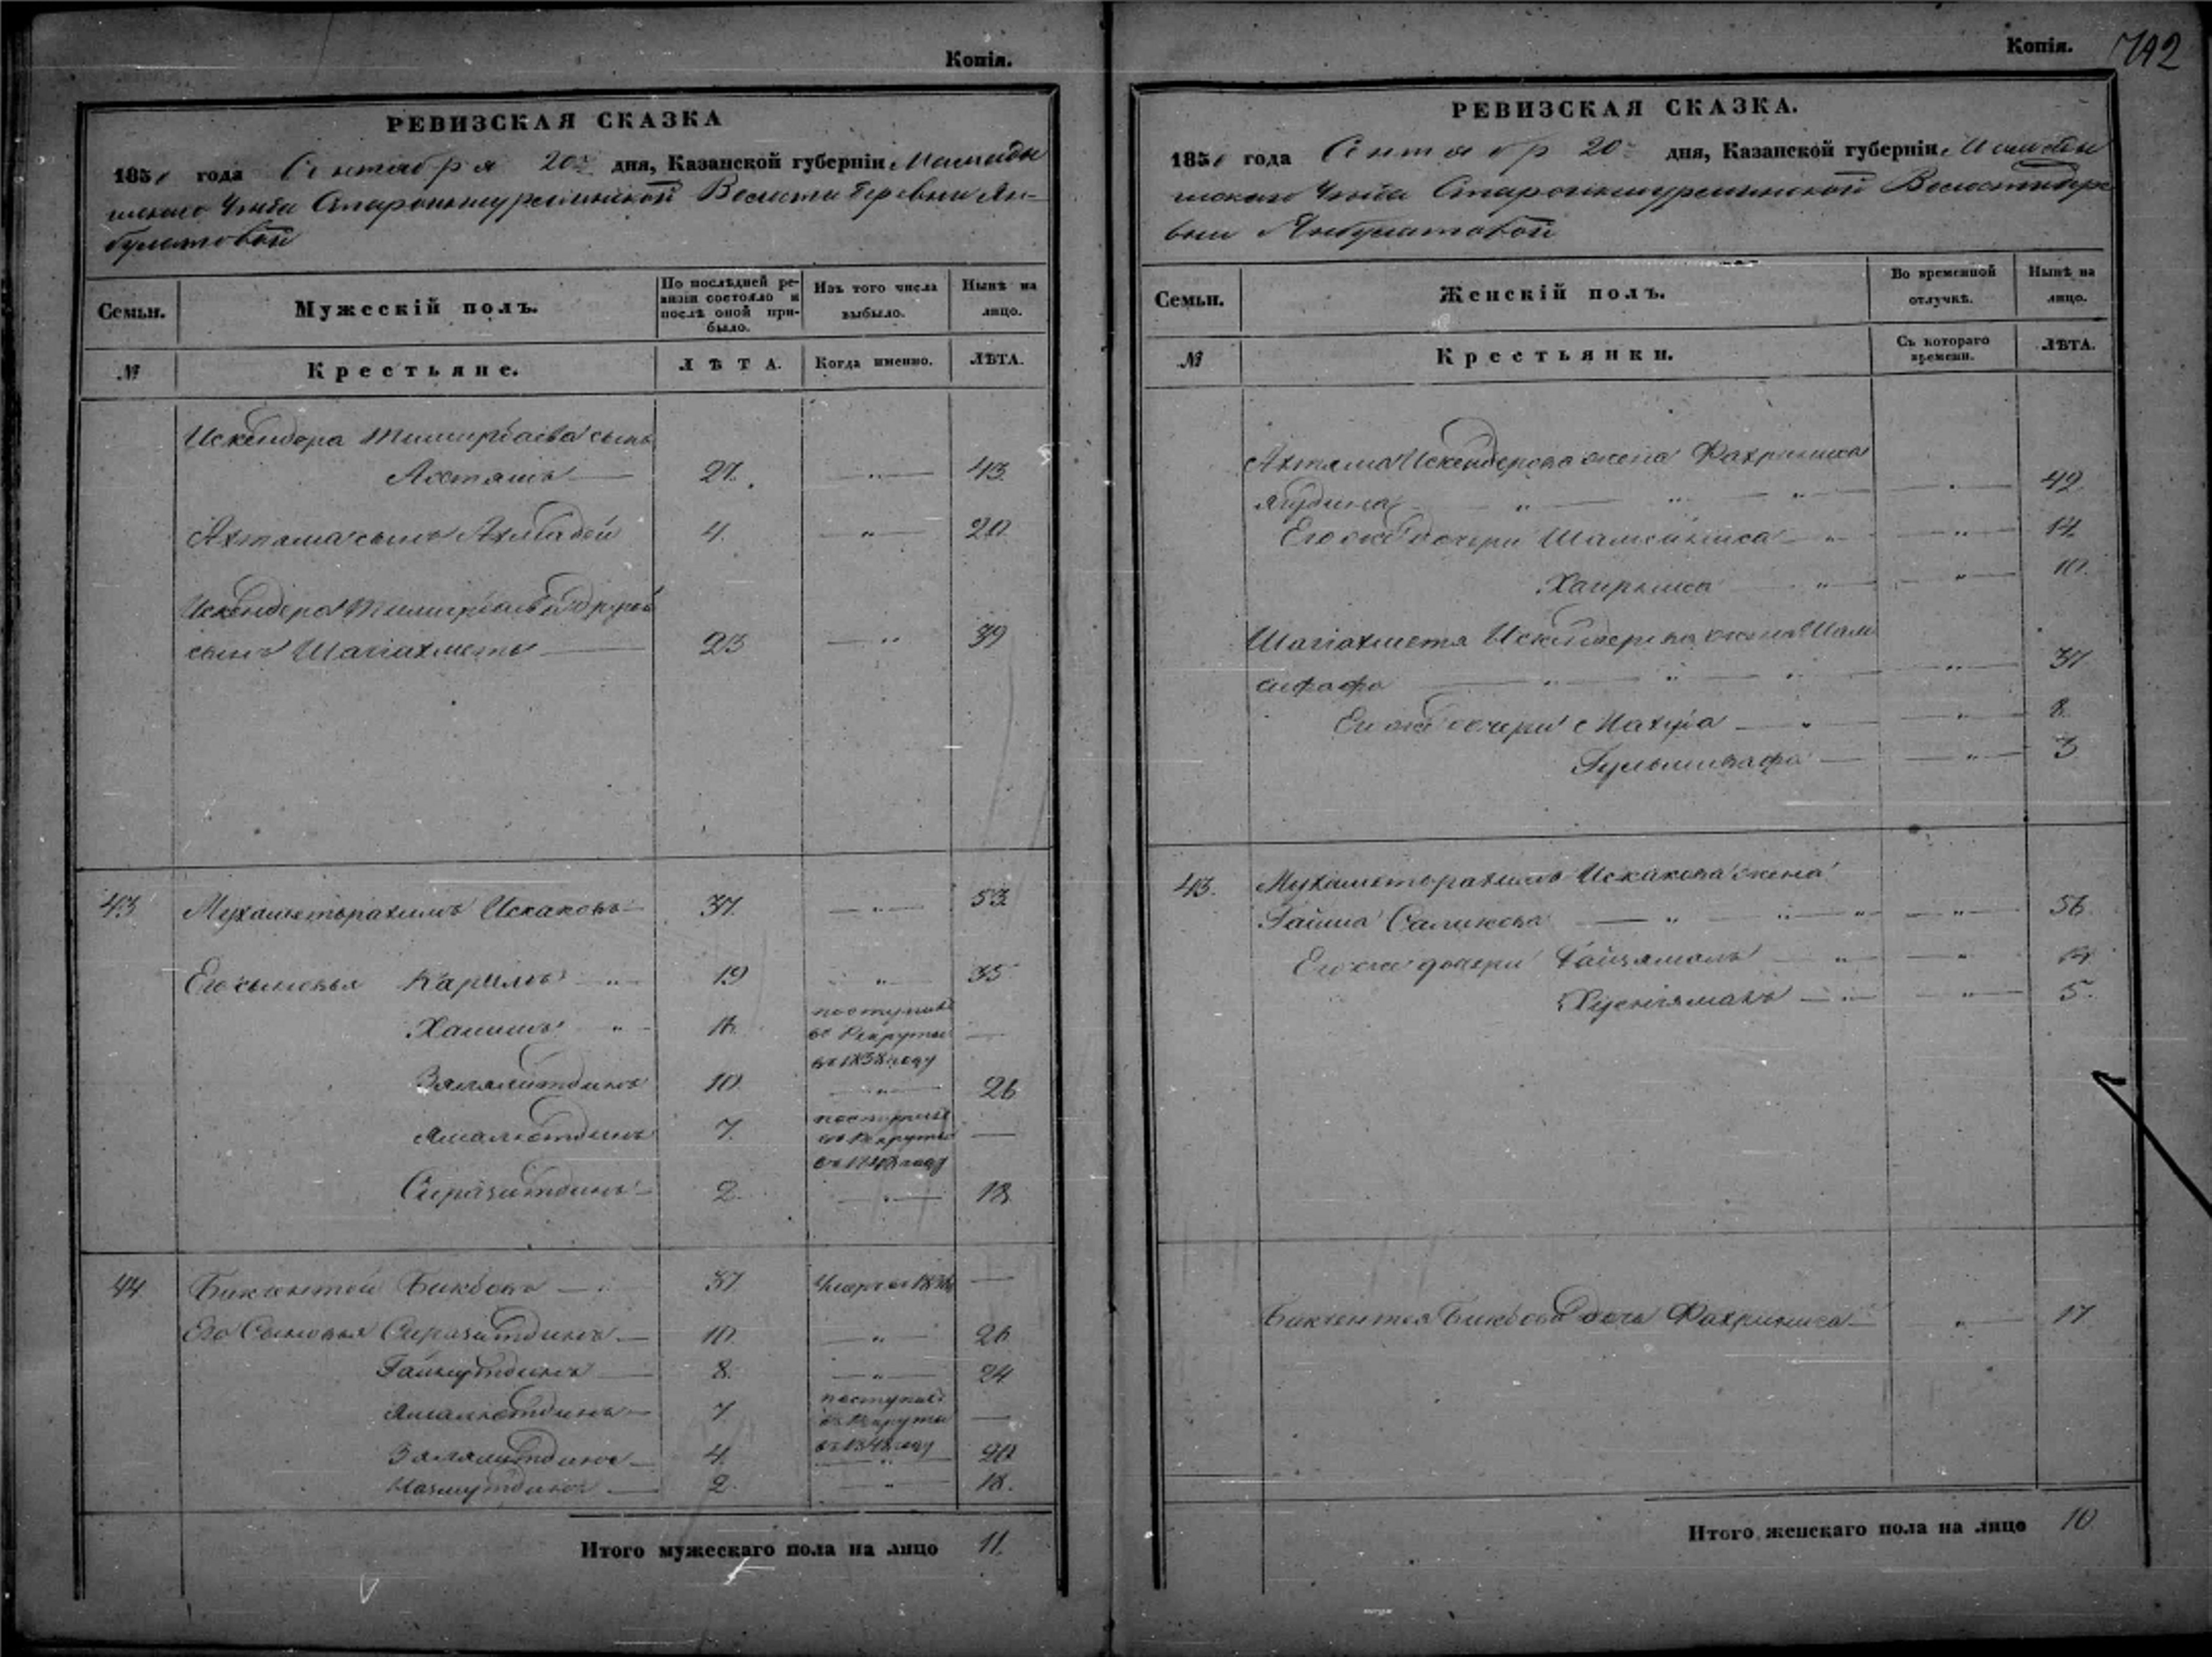 Копія.
РЕВИЗСКАЯ СКАЗКА
1850 года Сентября 20го дня, Казанской губерніи Мамады
шскаго Уѣзда Волости деревни Ян-
булатовой
Семьи.
Мужескій полъ.
По послѣдней ре-
визіи состояло и
послѣ оной при-
было.
Изъ того числа
выбыло.
Нынѣ на
лицо.
№
Крестьяне.
ЛѢТА.
Когда именно.
ЛѢТА.
Искендера Тимирбаева сынъ
Ахтямъ 27. 43.
Ахтяма сынъ 4. 20
Искендера Тимирбаева другой
сынъ Шагіахметъ 23 39
43 Мухаметьрахимъ Искаковъ 37. 53.
Его сыновья Каримъ 19 35
Халимъ поступилъ
въ Рекруты
въ 1838 году
Залялитдинъ 10. 26
Ямалютдинъ 7. поступилъ
въ Рекруты
году
Сиразитдинъ 2. 18.
44. Бикчентей Бикбовъ 37. Умеръ въ
Его Сыновья Сиразитдинъ 10. 26.
Гайнутдинъ 8. 24
Ямалютдинъ 7. поступилъ
въ Рекруты
въ 1848 году
Залялитдинъ 4. 20
Назмутдинъ 2. 18.
Итого мужескаго пола на лицо 11.
Копія. 742
РЕВИЗСКАЯ СКАЗКА.
1850 года Сентябр 20го дня, Казанской губерніи, Мамады
шскаго Уѣзда Волости дере
вни Янбулатовой
Семьи.
Женскій полъ.
Во временной
отлучкѣ.
Нынѣ на
лицо.
№
Крестьянки.
Съ котораго
времени.
ЛѢТА.
Ахтяма Искендерова жена Фахриниса
42.
Его же дочери 14.
Хаирниса 10.
Шагіахметя Искендерова жена Шам
сифафа 37
Его же дочери Махуба 8.
3
43. Мухаметьрахима Искакова жена
Гайша Салихова 56.
Его же дочери
5.
Бикчентея Бикбова дочь Фахриниса 17
Итого женскаго пола на лицо 10